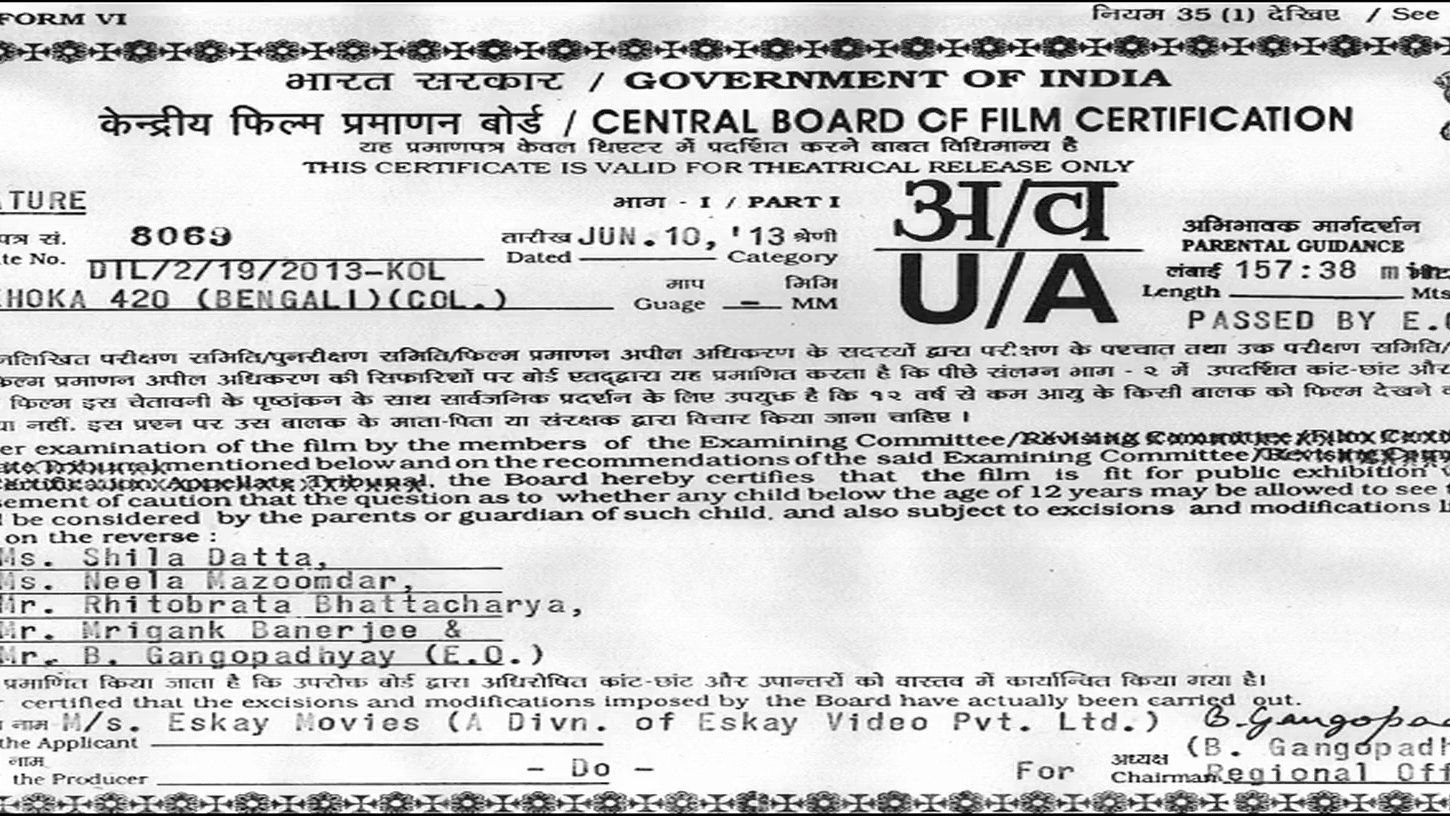 FORM VI
नियम 35 (1) देखिए / See
भारत सरकार / GOVERNMENT OF INDIA
केन्द्रीय फिल्म प्रमाणन बोर्ड / CENTRAL BOARD OF FILM CERTIFICATION
यह प्रमाणपत्र केवल थिएटर में प्रदर्शित करने बाबत विधिमान्य है
THIS CERTIFICATE IS VALID FOR THEATRICAL RELEASE ONLY
TURE
भाग - I / PART I
अ/व
U/A
अभिभावक मार्गदर्शन
PARENTAL GUIDANCE
पत्र सं. 8069
te No. DIL/2/19/2013-KOL
तारीख JUN.10, '13 श्रेणी
Dated Category
HOKA 420 (BENGALI)(COL.)
माप मिमि
Guage - MM
लंबाई 157:38
Length Mts
PASSED BY E.
नलिखित परीक्षण समिति/पुनरीक्षण समिति/फिल्म प्रमाणन अपील अधिकरण के सदस्यों द्वारा परीक्षण के पश्चात तथा उक्त परीक्षण समिति/
फिल्म प्रमाणन अपील अधिकरण की सिफारिशों पर बोर्ड एतद्द्वारा यह प्रमाणित करता है कि पीछे संलग्न भाग - २ में उपदर्शित कांट-छांट और
फिल्म इस चेतावनी के पृष्ठांकन के साथ सार्वजनिक प्रदर्शन के लिए उपयुक्त है कि १२ वर्ष से कम आयु के किसी बालक को फिल्म देखने
या नहीं. इस प्रश्न पर उस बालक के माता-पिता या संरक्षक द्वारा विचार किया जाना चाहिए ।
er examination of the film by the members of the Examining Committee/Revising Committee/Film
ate Tribunal mentioned below and on the recommendations of the said Examining Committee/Revising
Certification Appellate Tribunal. the Board hereby certifies that the film is fit for public exhibition
sement of caution that the question as to whether any child below the age of 12 years may be allowed to see
d be considered by the parents or guardian of such child. and also subject to excisions and modifications
on the reverse :
Ms. Shila Datta,
Ms. Neela Mazoomdar,
Mr. Rhitobrata Bhattacharya,
Mr. Mrigank Banerjee &
Mr. B. Gangopadhyay (E.O.)
प्रमाणित किया जाता है कि उपरोक्त बोर्ड द्वारा अधिरोपित कांट-छांट और उपान्तरों को वास्तव में कार्यान्वित किया गया है।
certified that the excisions and modifications imposed by the Board have actually been carried out.
नाम M/s. Eskay Movies (A Divn. of Eskay Video Pvt. Ltd.)
the Applicant
B. Gangopa
(B. Gangopadh
नाम
the Producer - Do -
For अध्यक्ष
Chairman Regional Off